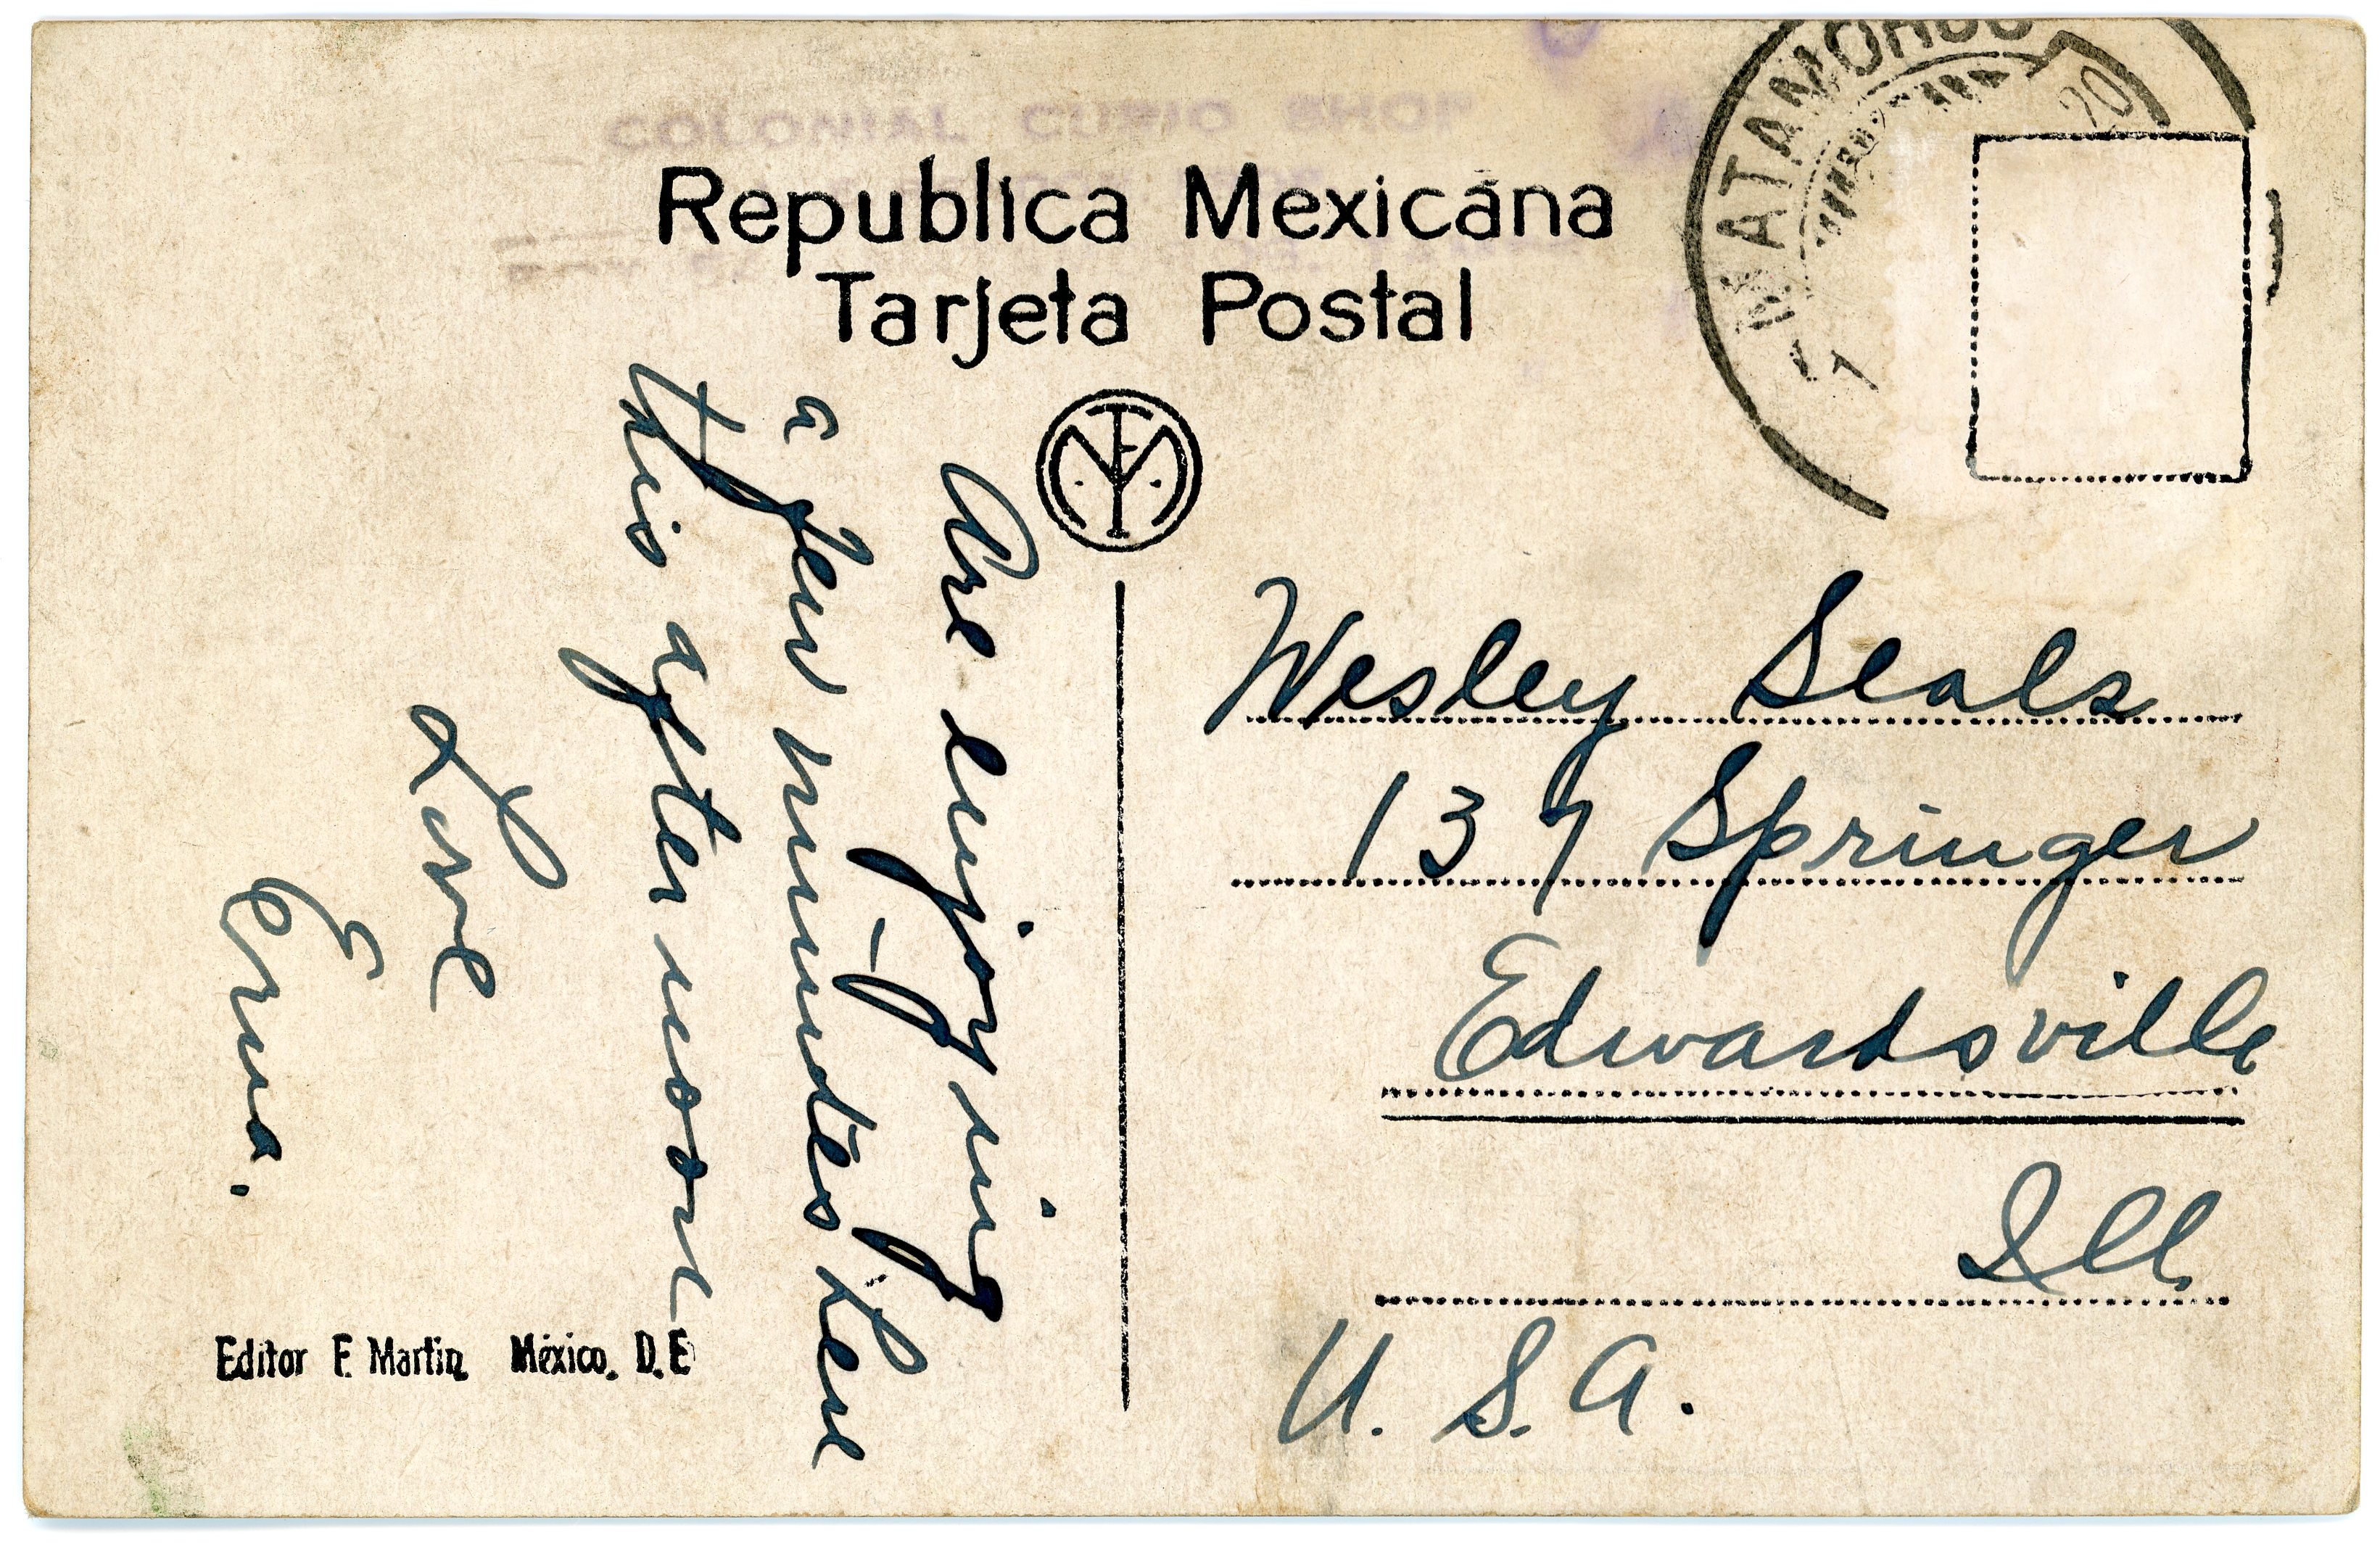 COLONIAL CURIO SHOP
MATAMOROS
20
Republica Mexicána
Tarjeta Postal
Are enjoying
a few minutes here
this afternoon
Love
Erna.
Wesley Seals
137 Springer
Edwardsville
Ill.
U. S. A.
Editor F. Martin México. D. F